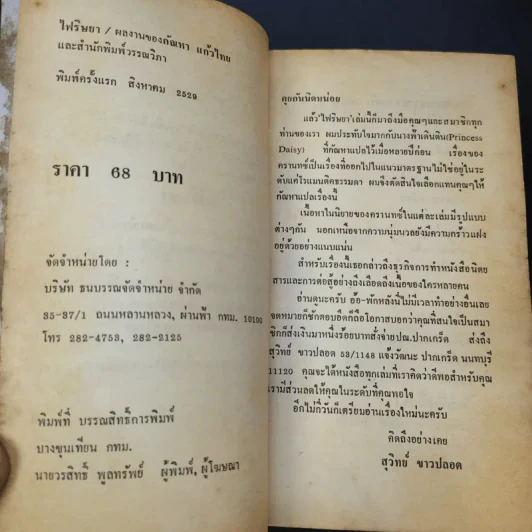 ไฟริษยา / ผลงานของกัณหา แก้วไทย
และสำนักพิมพ์วรรณวิภา
พิมพ์ครั้งแรก สิงหาคม 2529
ราคา 68 บาท
จัดจำหน่ายโดย :
บริษัท ธนบรรณจัดจำหน่าย จำกัด
35-37/1 ถนนหลานหลวง, ผ่านฟ้า กทม. 10100
โทร 282-4753, 282-2125
พิมพ์ที่ บรรณสิทธิ์การพิมพ์
บางขุนเทียน กทม.
นายวรสิทธิ์ พูลทรัพย์ ผู้พิมพ์, ผู้โฆษณา
คุยกันนิดหน่อย
แล้ว'ไฟริษยา'เล่มนี้ก็มาถึงมือคุณๆและสมาชิกทุก
ท่านของเรา ผมประทับใจมากกับนางฟ้าเดินดิน(Princess
Daisy) ที่กัณหาแปลไว้เมื่อหลายปีก่อน เรื่องของ
ครานทซ์เป็นเรื่องที่ออกไปในแนวมาตรฐานไม่ใช้อยู่ในระ
ดับแค่โรแมนติคธรรมดา ผมจึงตัดสินใจเลือกแทนคุณๆให้
กัณหาแปลเรื่องนี้
เนื้อหาในนิยายของครานทซ์ในแต่ละเล่มมีรูปแบบ
ต่างๆกัน นอกเหนือจากความนุ่มนวลยังมีความกร้าวแฝง
อยู่ด้วยอย่างแนบแน่น
สำหรับเรื่องนี้เธอกล่าวถึงธุรกิจการทำหนังสือนิตย
สารและการต่อสู้อย่างถึงเลือดถึงเนื้อของใครหลายคน
อ่านดูนะครับ อ้อ-พักหลังนี้ไม่มีเวลาทำอย่างอื่นเลย
จดหมายก็ชักตอบอืดก็ถือโอกาสบอกว่าคุณที่สนใจเป็นสมา
ชิกก็ส่งเงินมาหนึ่งร้อยบาทสั่งจ่ายปณ.ปากเกร็ด ส่งถึง
สุวิทย์ ขาวปลอด 53/1148 แจ้งวัฒนะ ปากเกร็ด นนทบุรี
11120 คุณจะได้หนังสือทุกเล่มที่เราคิดว่าดีพอสำหรับคุณ
เรามีส่วนลดให้คุณในระดับที่คุณพอใจ
อีกไม่กี่วันก็เตรียมอ่านเรื่องใหม่นะครับ
คิดถึงอย่างเคย
สุวิทย์ ขาวปลอด